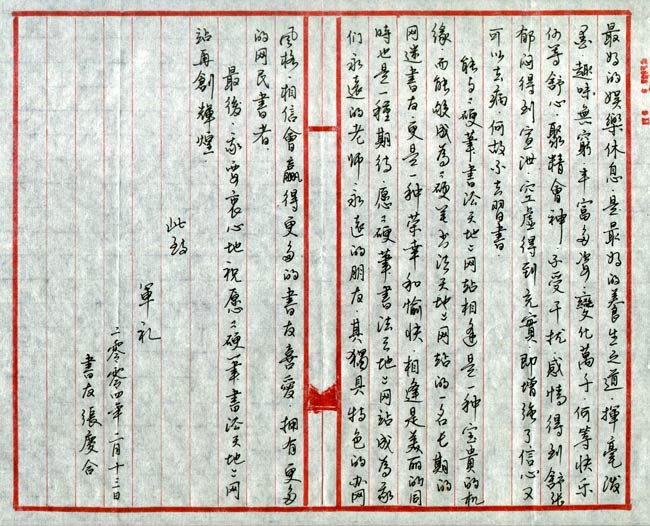 最好的娱樂休息.是最好的養生之道.揮毫潑
墨趣味無窮丰富多姿變化萬千.何等快乐
何等舒心.聚精會神.不受干扰感情得到舒张
郁闷得到宣泄.空虚得到充實即增强了信心又
可以去病.何故不去習書.
能与"硬筆書法天地"网站相逢是一种宝贵的机
缘.而能够成為"硬笔书法天地"网站的一名长期的
网迷書友更是一种荣幸和愉快.相逢是美丽的同
時也是一種期待.愿"硬筆書法天地"网站成為我
们永遠的老师永遠的朋友.其獨具特色的办网
風格.相信會贏得更多的書友喜愛.拥有更多
的网民書者.
最後.我要衷心地祝愿"硬筆書法天地"网
站再創輝煌.
此致
軍礼
二零零四年二月十三日
書友張慶合